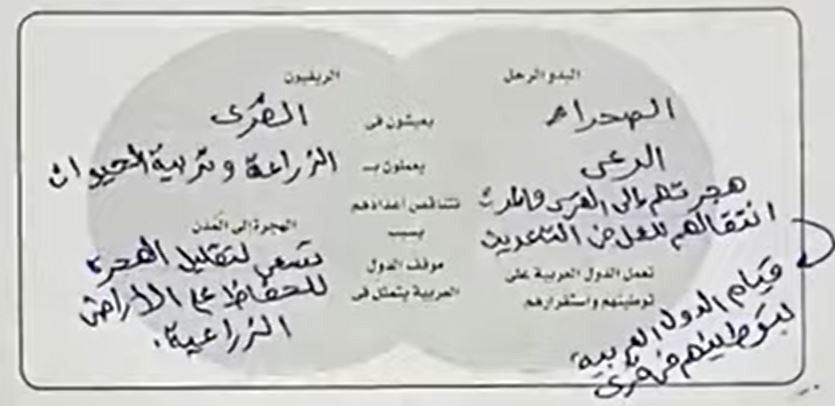 البدو الرحل
الريفيون
الصحراء
يعيشون فى
القرى
الرعى
يعملون بـ
الزراعة وتربية الحيوان
هجرتهم إلى القرى والمدن
تتناقص أعدادهم
انتقالهم للعمل فى التعدين
بسبب
الهجرة إلى المدن
تعمل الدول العربية على
توطينهم واستقرارهم
موقف الدول
العربية يتمثل فى
تسعى لتقليل الهجرة
للحفاظ على الأراضى
الزراعية.
قيام الدول العربية
بتوطينهم فى قرى